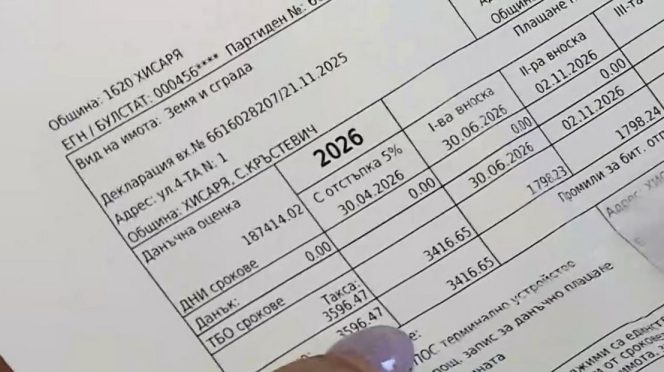 Община: 1620 ХИСАРЯ
ЕГН / БУЛСТАТ: 000456**** Партиден №:
Вид на имота: Земя и сграда
Декларация вх.№ 6616028207/21.11.2025
Адрес: ул.4-ТА N: 1
Община: ХИСАРЯ, С.КРЪСТЕВИЧ
Данъчна оценка
187414.02
2026
С отстъпка 5%
30.04.2026
I-ва вноска
30.06.2026
II-ра вноска
02.11.2026
III-та
Плащане
Общин
ДНИ срокове
0.00
0.00
0.00
0.00
Данък:
ТБО срокове
30.06.2026
02.11.2026
Такса:
3596.47
3416.65
1798.23
1798.24
3596.47
3416.65
Промили за бит. отп
Адрес: ХИС
ПОС терминално устройство
рощ. запис за данъчно плащане